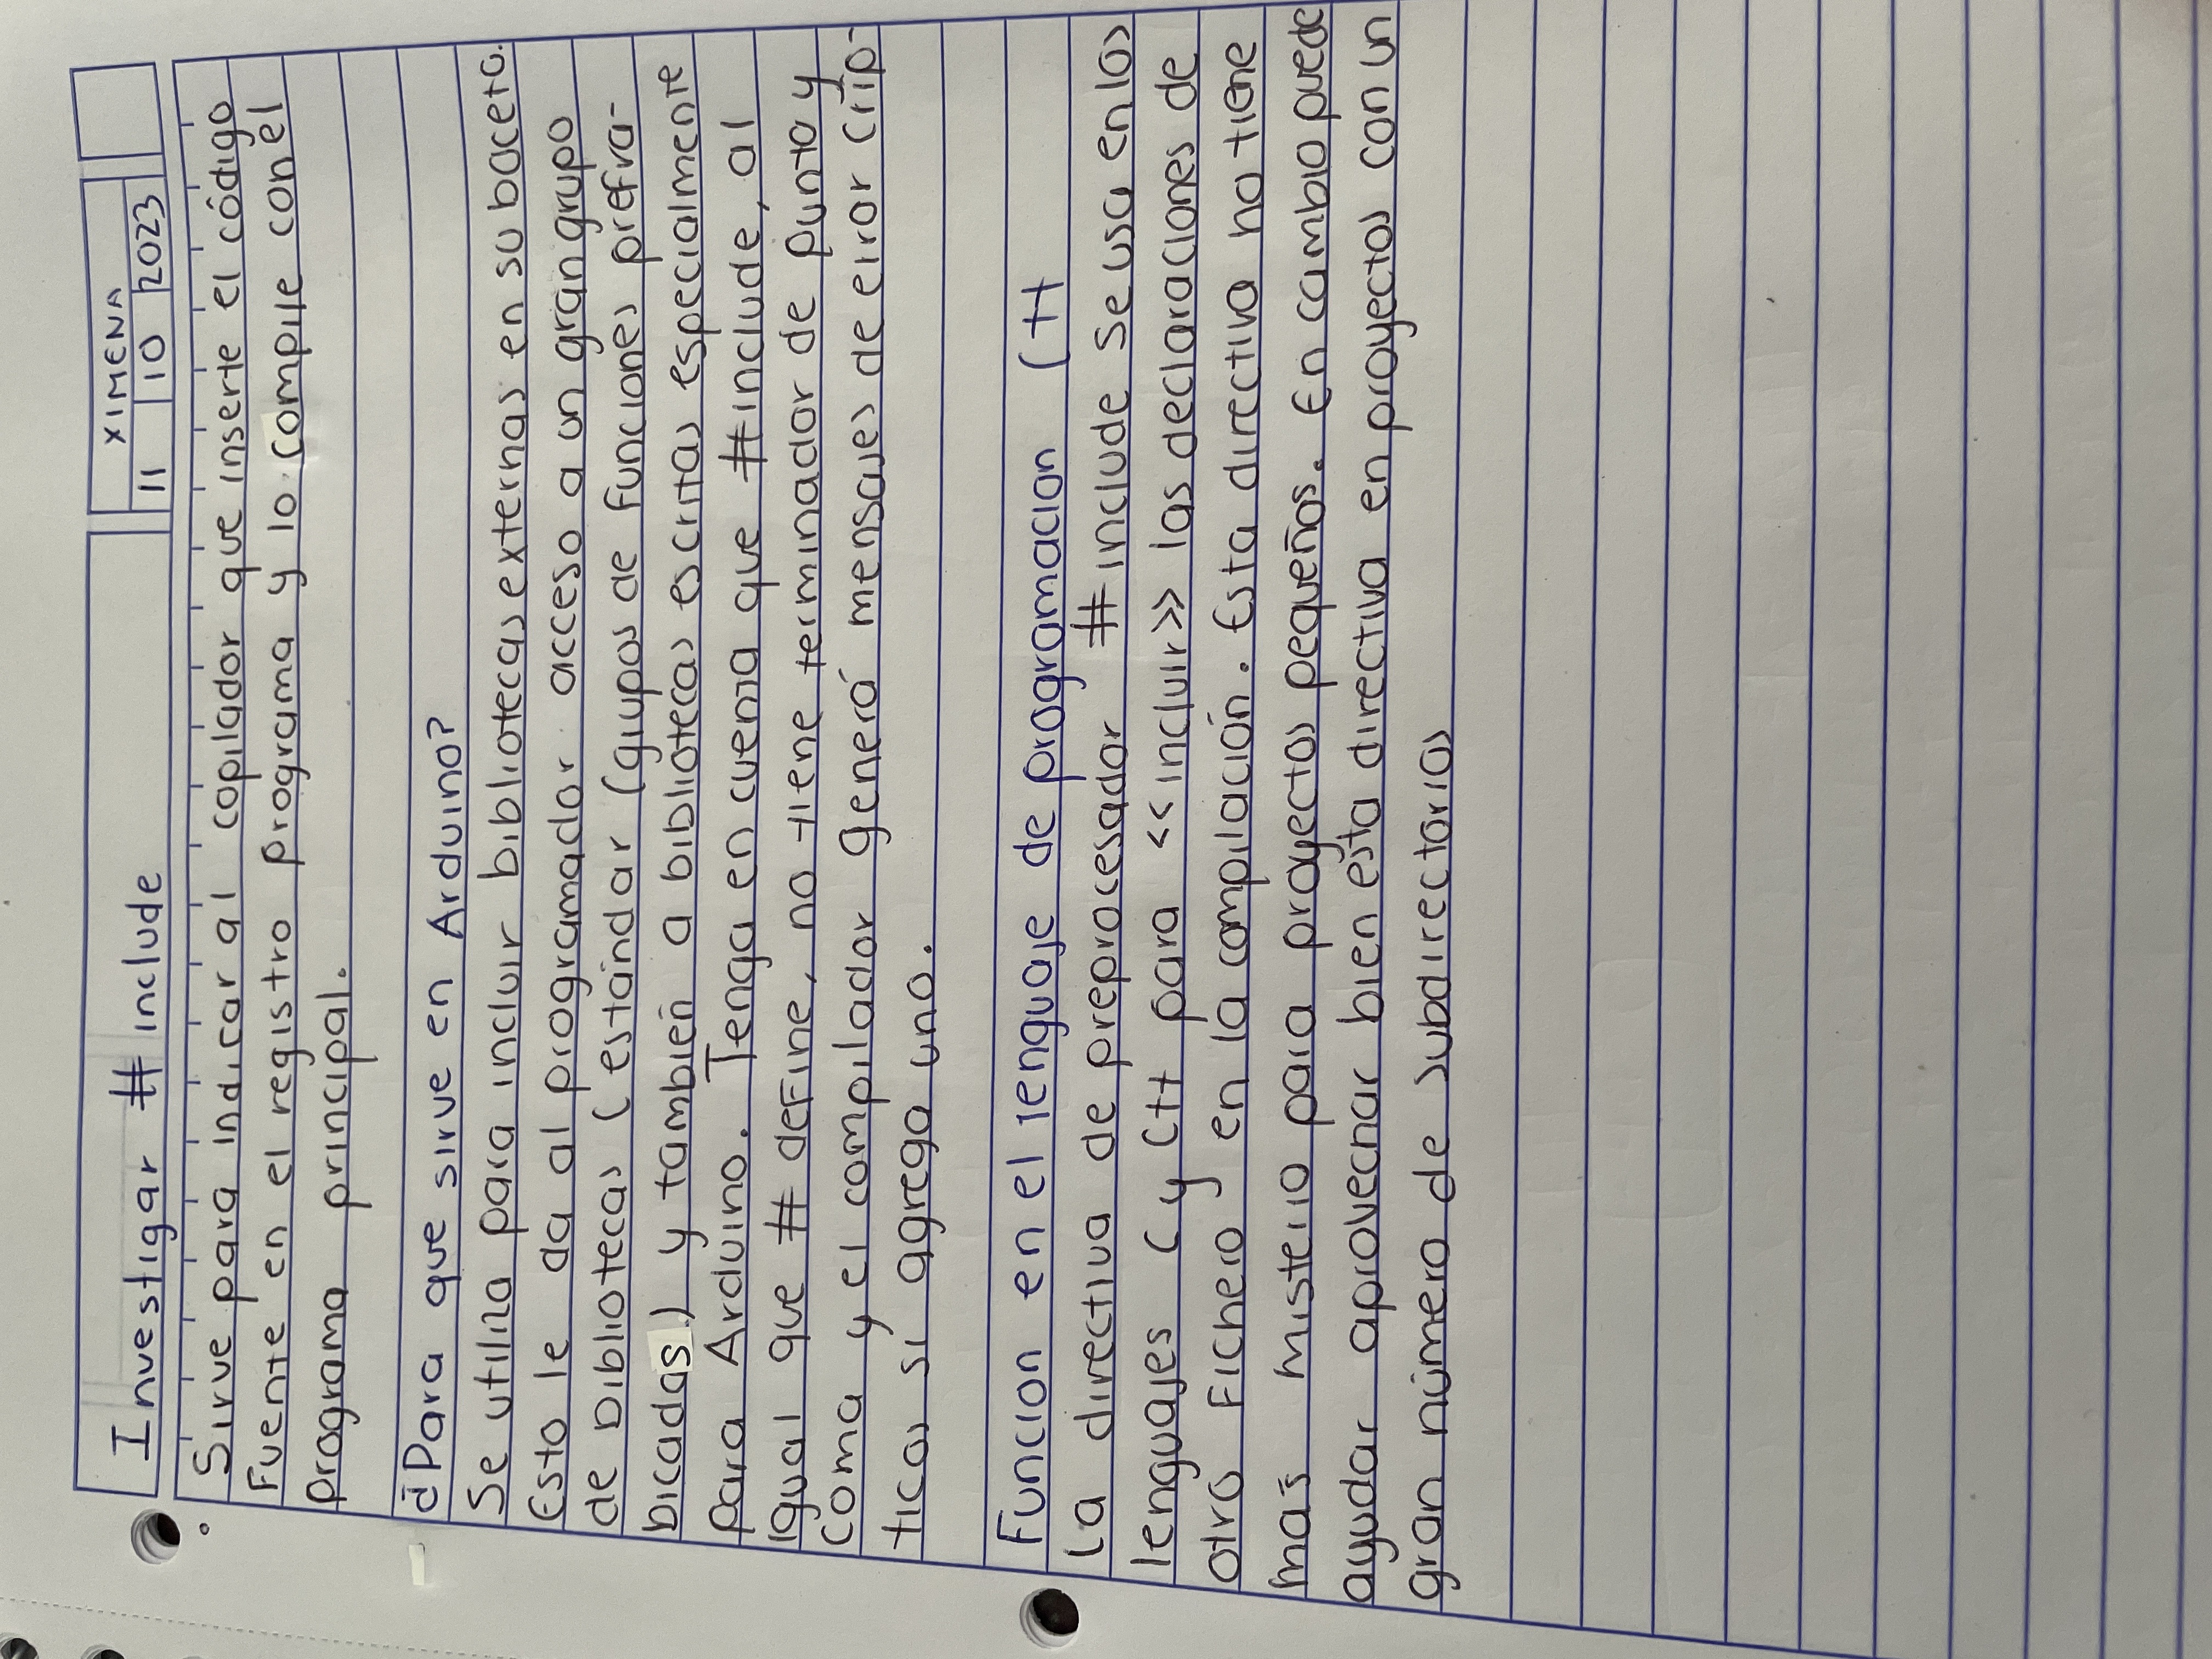 Investigar # include
XIMENA
11 10 2023
Sirve para indicar al copilador que inserte el código
Fuente en el registro programa y lo compile con el
programa principal.
¿Para que sirve en Arduino?
Se utiliza para incluir bibliotecas externas en su boceto.
Esto le da al programador acceso a un gran grupo
de bibliotecas (estándar (grupos de funciones prefra-
bicadas) y también a bibliotecas escritas especialmente
para Arduino. Tenga en cuenta que #include, al
igual que # define, no tiene terminador de punto y
coma y el compilador generá mensajes de error crip-
ticos si agrega uno.
Funcion en el lenguaje de programacion C++
La directiva de preprocesador #include se usa en los
lenguajes C y C++ para <<incluir>> las declaraciones de
otro fichero en la compilación. Esta directiva no tiene
más misterio para proyectos pequeños. En cambio puede
ayudar aprovechar bien esta directiva en proyectos con un
gran número de subdirectorios